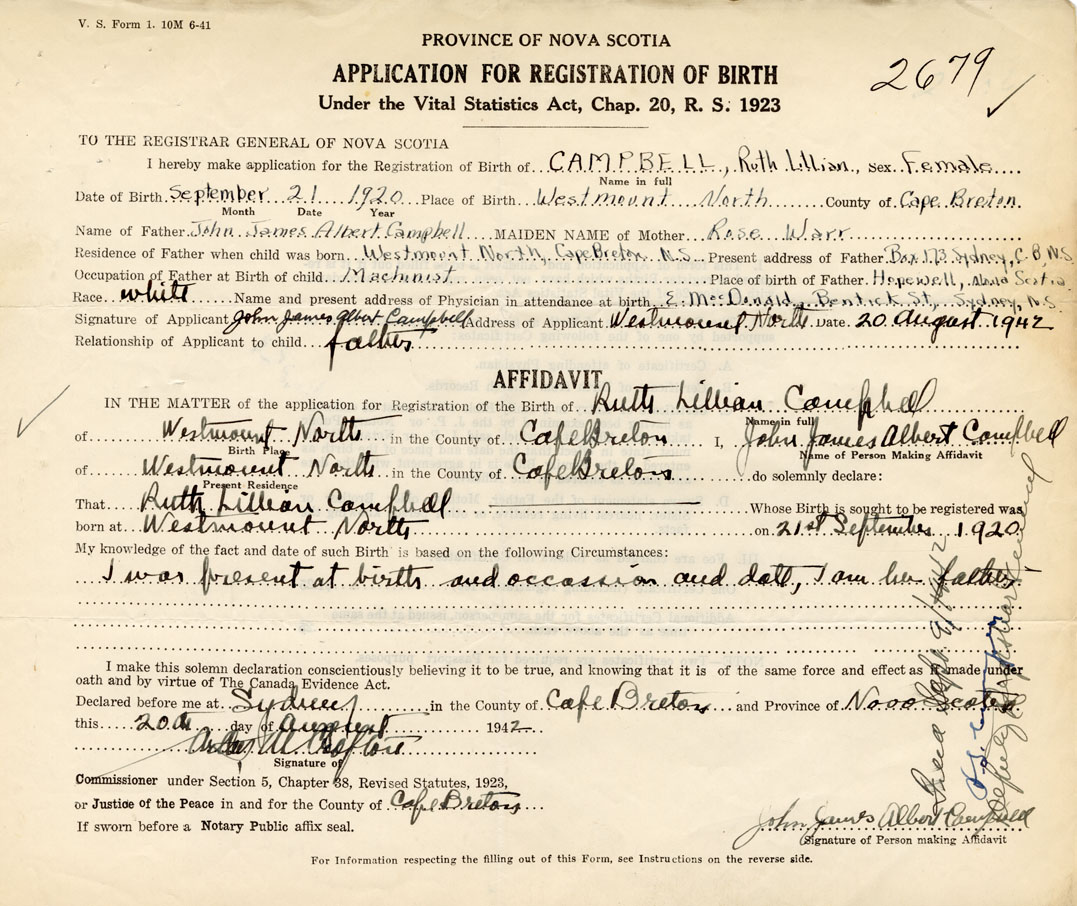 V. S. Form 1. 10M 6-41
PROVINCE OF NOVA SCOTIA
APPLICATION FOR REGISTRATION OF BIRTH
2679
Under the Vital Statistics Act, Chap. 20, R. S. 1923
TO THE REGISTRAR GENERAL OF NOVA SCOTIA
I hereby make application for the Registration of Birth of CAMPBELL, Ruth Lillian, Sex Female
Name in full
Date of Birth September 21 1920 Place of Birth Westmount North County of Cape Breton
Month Date Year
Name of Father John James Albert Campbell MAIDEN NAME of Mother Rose Warr
Residence of Father when child was born Westmount North, Cape Breton N.S. Present address of Father Box 173 Sydney, C.B. N.S.
Occupation of Father at Birth of child Machinist Place of birth of Father Hopewell, Nova Scotia
Race white Name and present address of Physician in attendance at birth E. MacDonald, Bentick St, Sydney, N.S.
Signature of Applicant John James Albert Campbell Address of Applicant Westmount North Date 20 August 1942
Relationship of Applicant to child father
AFFIDAVIT
IN THE MATTER of the application for Registration of the Birth of Ruth Lillian Campbell
Name in full
of Westmount North in the County of Cape Breton I, John James Albert Campbell
Birth Place Name of Person Making Affidavit
of Westmount North in the County of Cape Breton do solemnly declare:
Present Residence
That Ruth Lillian Campbell Whose Birth is sought to be registered was
born at Westmount North on 21st September 1920
My knowledge of the fact and date of such Birth is based on the following Circumstances:
I was present at birth and occassion and date, I am her father
I make this solemn declaration conscientiously believing it to be true, and knowing that it is of the same force and effect as if made under
oath and by virtue of The Canada Evidence Act.
Declared before me at Sydney in the County of Cape Breton and Province of Nova Scotia
this 20th day of August 1942
Signature of
Commissioner under Section 5, Chapter 38, Revised Statutes, 1923,
or Justice of the Peace in and for the County of Cape Breton
If sworn before a Notary Public affix seal.
John James Albert Campbell
Signature of Person making Affidavit
For Information respecting the filling out of this Form, see Instructions on the reverse side.
Filed Sept. 9/1942
Deputy Registrar General